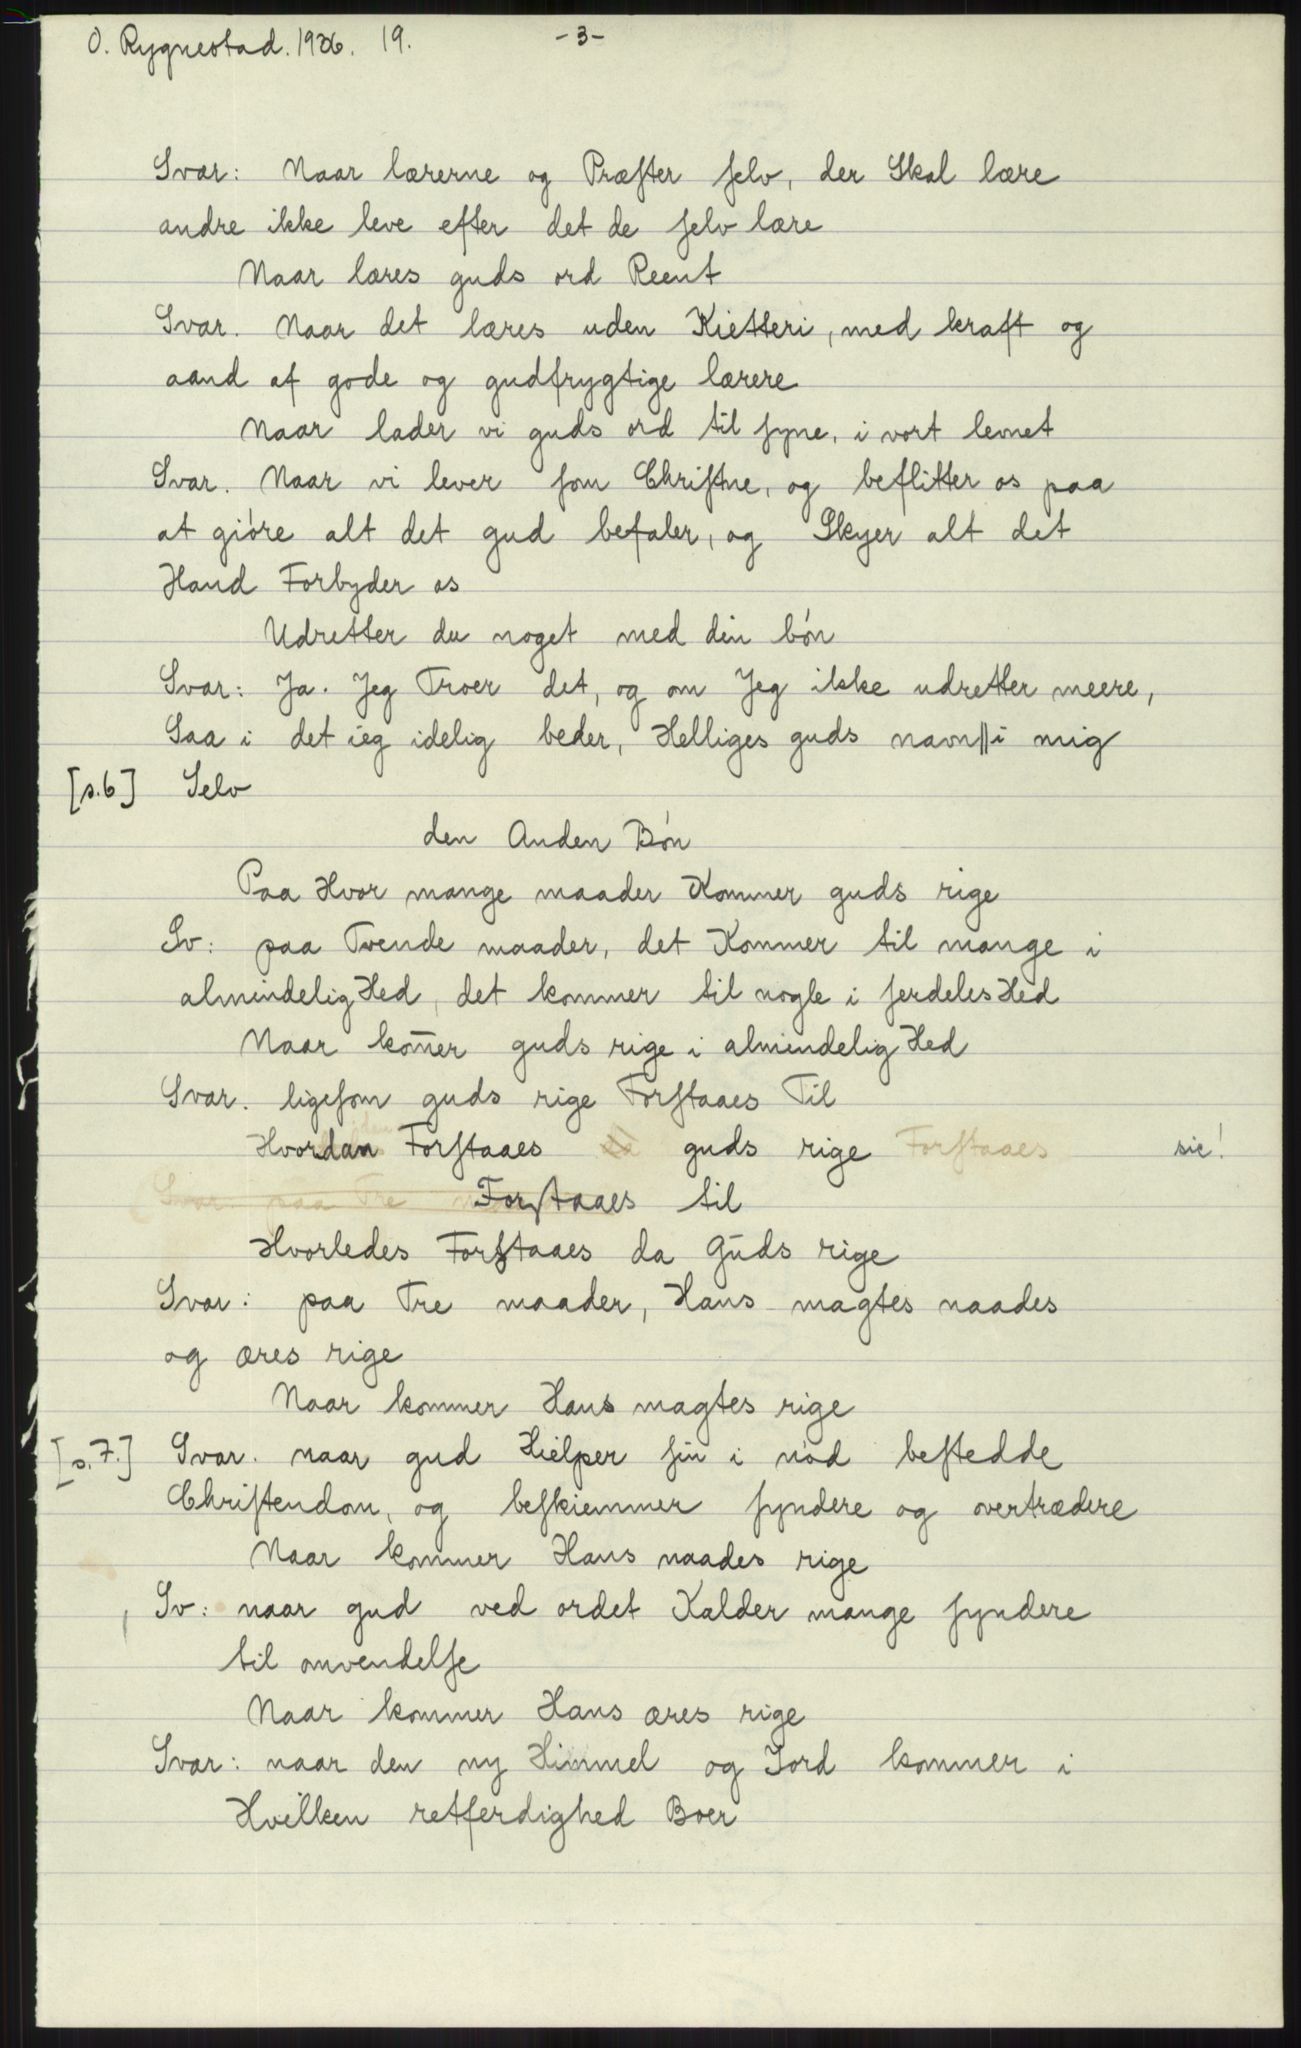 O. Rygnestad. 1926. 19. -3-
Svar: Naar lærerne og Præſter ſelv, der Skal lære
andre ikke leve efter det de ſelv lære
Naar læres guds ord Reent
Svar. Naar det læres uden Kietteri, med kraft og
aand af gode og gudfrygtige lærere
Naar lader vi guds ord til ſyne, i vort levnet
Svar. Naar vi lever ſom Chriſtne, og beflitter os paa
at gióre alt det gud befaler, og Skyer alt det
Hand Forbyder os
Udretter du noget med din bón
Svar: Ja. Jeg Troer det, og om Jeg ikke udretter meere,
Saa i det ieg idelig beder, Helliges guds navn || i mig
[s.6] Selv
den Anden Bón
Paa Hvor mange maader Kommer guds rige
Sv: paa Tvende maader, det Kommer til mange i
almindelig Hed, det kommer til nogle i ſerdeles Hed
Naar kom̄er guds rige i almindelig Hed
Svar. ligeſom guds rige Forſtaaes Til
Hvordan Forſtaaes da guds rige Forſtaaes sic!
Svar paa Tre Forſtaaes til
Hvorledes Forſtaaes da Gūds rige
Svar: paa Tre maader, Hans magtes naades
og æres rige
Naar kommer Hans magtes rige
[s.7.] Svar. naar gud Hielper ſin i nód beſtedde
Chriſtendom, og beſkiemmer ſyndere og overtrædere
Naar kommer Hans naades rige
Sv: naar gud ved ordet Kalder mange ſyndere
til omvendelſe
Naar kommer Hans æres rige
Svar: naar den ny Himmel og Jord kommer i
Hvilken retferdighed Boer